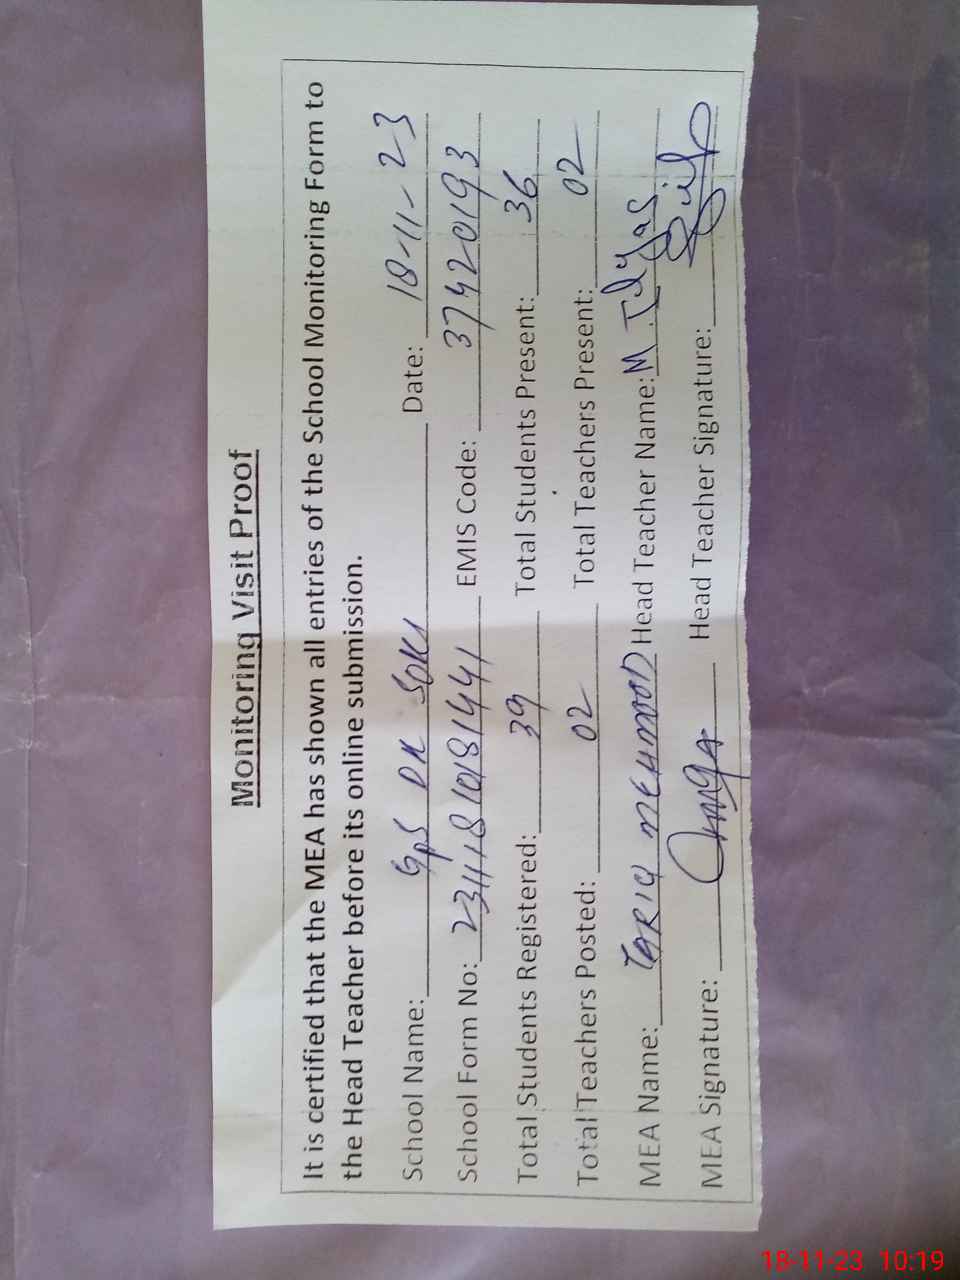 Monitoring Visit Proof
It is certified that the MEA has shown all entries of the School Monitoring Form to
the Head Teacher before its online submission.
School Name: GPS DK Date: 18-11-23
School Form No: EMIS Code: 37420193
Total Students Registered: 39 Total Students Present: 36
Total Teachers Posted: 02 Total Teachers Present: 02
MEA Name: TARIQ MEHMOOD Head Teacher Name: M Ilyas
MEA Signature: Head Teacher Signature:
18-11-23 10:19